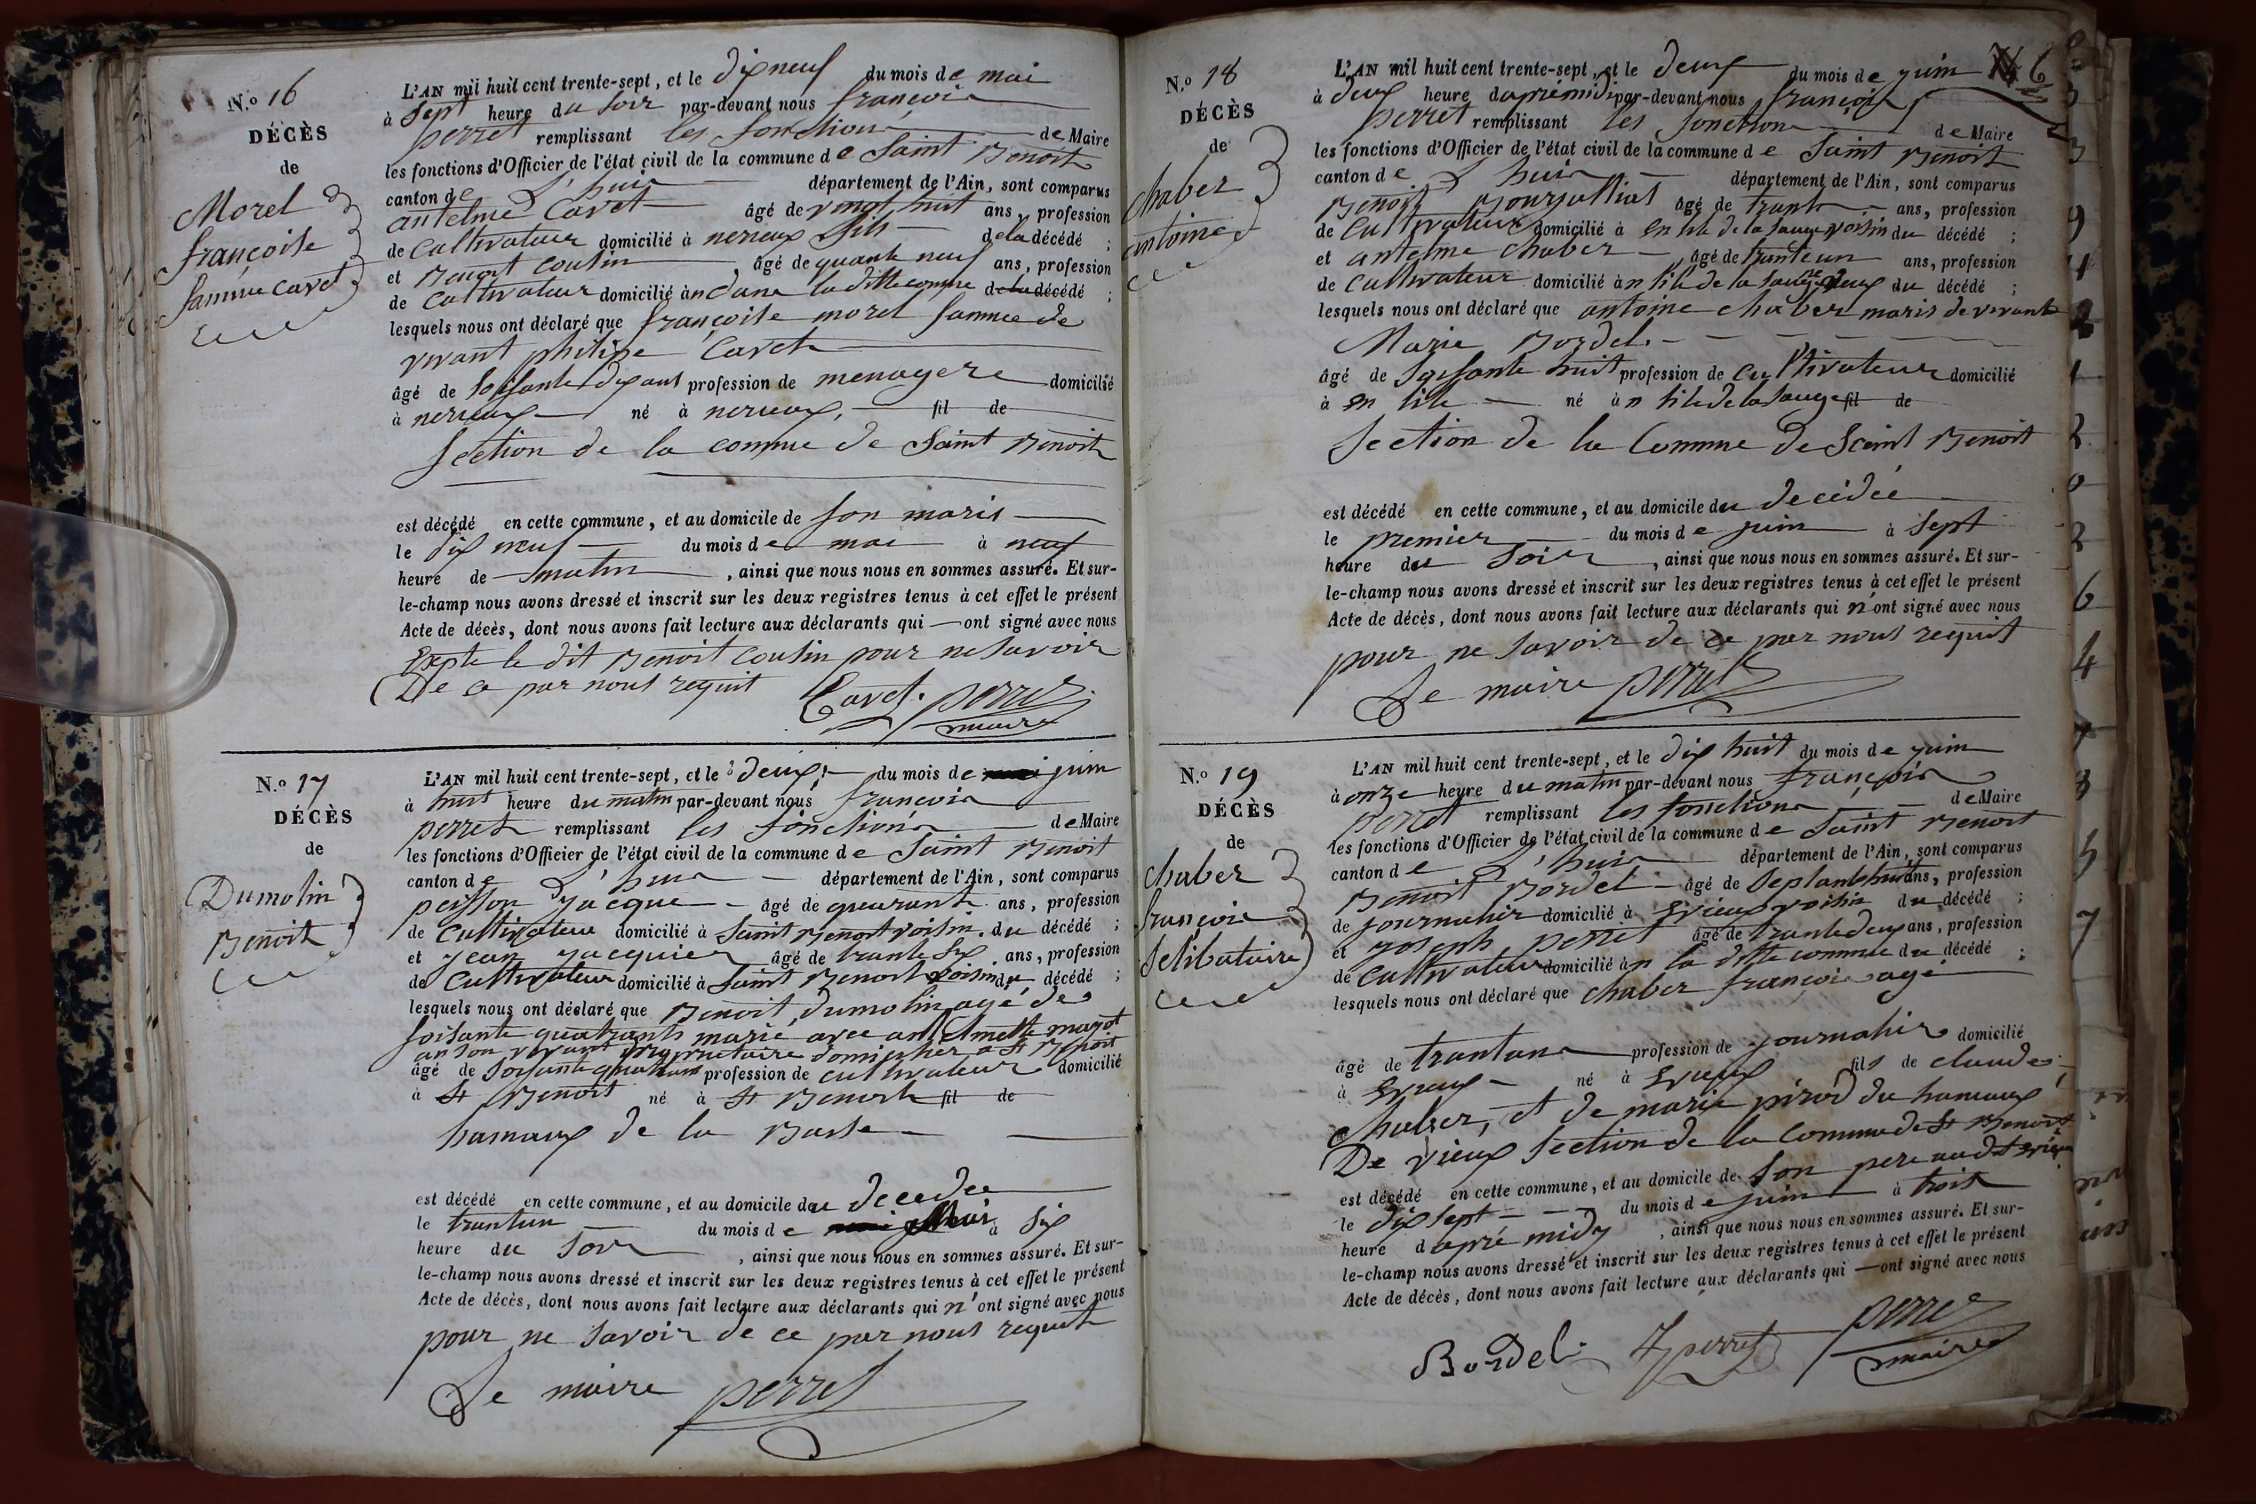 N.o 16
DÉCÈS
de
Morel
françoise
famme cavet
L'AN mil huit cent trente-sept, et le dix neuf du mois de mai
à sept heure du soir par-devant nous françois
perret remplissant les fonctions de Maire
les fonctions d'Officier de l'état civil de la commune de Saint Benoit
canton de L'huis département de l'Ain, sont comparus
antelme Cavet âgé de vingt huit ans, profession
de Cultivateur domicilié à nerieux fils de la décédé ;
et Benoit cousin, âgé de quarante neuf ans, profession
de Cultivateur domicilié àn dans la ditte comune de la décédé ;
lesquels nous ont déclaré que françoise morel famme de
vivant philipe Cavet
âgé de soisante dix ans profession de menagere domicilié
à nerieux né à nerieux, fil de
section de la comune de Saint Benoit
est décédé en cette commune, et au domicile de son maris
le dix neuf du mois de mai à neuf
heure de matin, ainsi que nous nous en sommes assuré. Et sur-
le-champ nous avons dressé et inscrit sur les deux registres tenus à cet effet le présent
Acte de décès, dont nous avons fait lecture aux déclarants qui — ont signé avec nous
Expte le dit Benoit cousin pour ne savoir
De ce par nous requit Cavet. perret
maire
N.o 17
DÉCÈS
de
Dumolin
Benoit
L'AN mil huit cent trente-sept, et le deux du mois de juin
à huit heure du matin par-devant nous françois
perret remplissant les fonctions de Maire
les fonctions d'Officier de l'état civil de la commune de Saint Benoit
canton de L'huis département de l'Ain, sont comparus
peysson jacque âgé de quarante ans, profession
de Cultivateur domicilié à Saint Benoit voisin du décédé ;
et jean jacquier âgé de trante six ans, profession
de Cultivateur domicilié à Saint Benoit voisin du décédé ;
lesquels nous ont déclaré que Benoit dumolin agé de
soisante quatrants marié avec antelmette mazot
an son vivant propriétaire domicilier a St Benoit
âgé de soisante quatrans profession de cultivateur domicilié
à St Benoit né à St Benoit fil de
hamaux de la Basse
est décédé en cette commune, et au domicile du decedee
le trantun du mois de mai à six
heure du soir, ainsi que nous nous en sommes assuré. Et sur-
le-champ nous avons dressé et inscrit sur les deux registres tenus à cet effet le présent
Acte de décès, dont nous avons fait lecture aux déclarants qui n'ont signé avec nous
pour ne savoir de ce par nous requit
Le maire perret
6
N.o 18
DÉCÈS
de
chaber
antoine
L'AN mil huit cent trente-sept, et le deux du mois de juin
à deux heure daprémidi par-devant nous françois
perret remplissant les fonctions de Maire
les fonctions d'Officier de l'état civil de la commune de Saint Benoit
canton de L'huis département de l'Ain, sont comparus
Benoit âgé de trante ans, profession
de Cultivateur domicilié à en lile de la sauge voisin du décédé ;
et antelme chaber, âgé de tranteun ans, profession
de Cultivateur domicilié àn lile de la sauge du décédé ;
lesquels nous ont déclaré que antoine chaber maris de vivant
Marie Bordel.
âgé de soisante huit profession de cultivateur domicilié
à en lile né àn lile de la sauge fil de
section de la Commune de Saint Benoit
est décédé en cette commune, et au domicile du decédée
le premier du mois de juin à sept
heure du Soir, ainsi que nous nous en sommes assuré. Et sur-
le-champ nous avons dressé et inscrit sur les deux registres tenus à cet effet le présent
Acte de décès, dont nous avons fait lecture aux déclarants qui n'ont signé avec nous
pour ne savoir de ce par nous requit
Le maire perret
N.o 19
DÉCÈS
de
chaber
françois
selibataire
L'AN mil huit cent trente-sept, et le dix huit du mois de juin
à onze heure du matin par-devant nous françois
perret remplissant les fonctions de Maire
les fonctions d'Officier de l'état civil de la commune de Saint Benoit
canton de L'huis département de l'Ain, sont comparus
Benoit Bordel âgé de septante huit ans, profession
de journalier domicilié à Evieux voisin du décédé ;
et joseph perret âgé de trante deux ans, profession
de Cultivateur domicilié àn la ditte commune du décédé ;
lesquels nous ont déclaré que chaber françois agé
âgé de trantans profession de journalier domicilié
à Evieux né à Evieux fils de claude
chaber, et de marie pirod du hamaux
De vieux section de la Commune de St Benoit
est décédé en cette commune, et au domicile de son pere audit Evieux
le dix sept du mois de juin à trois
heure d apré midy, ainsi que nous nous en sommes assuré. Et sur-
le-champ nous avons dressé et inscrit sur les deux registres tenus à cet effet le présent
Acte de décès, dont nous avons fait lecture aux déclarants qui — ont signé avec nous
Bordel. J perret perret
maire